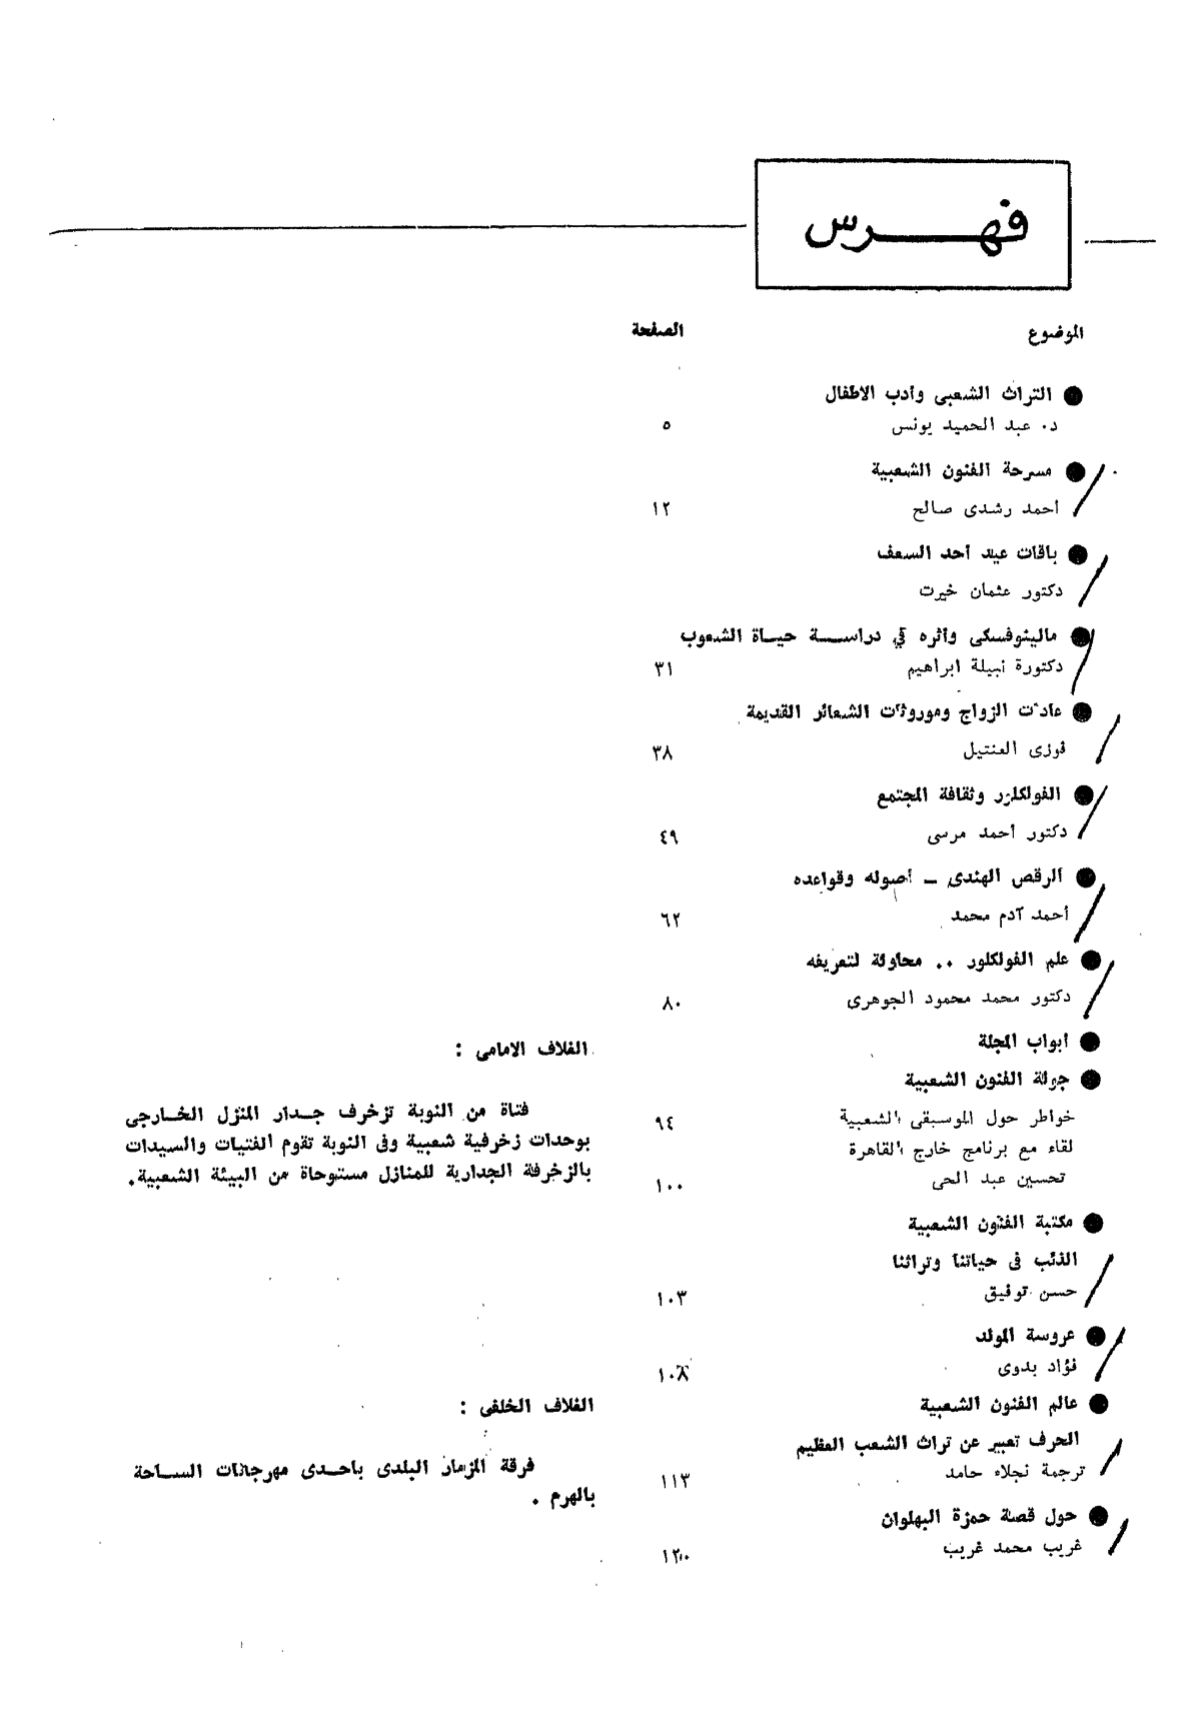 فهرس
الموضوع
الصفحة
● التراث الشعبى وأدب الاطفال
د. عبد الحميد يونس
٥
● مسرحة الفنون الشعبية
أحمد رشدى صالح
١٢
● باقات عيد أحد السعف
دكتور عثمان خيرت
● مالينوفسكى وأثره في دراسة حياة الشعوب
دكتورة نبيلة ابراهيم
٣١
● عادات الزواج وموروثات الشعائر القديمة
فوزى العنتيل
٣٨
● الفولكلور وثقافة المجتمع
دكتور أحمد مرسى
٤٩
● الرقص الهندى – أصوله وقواعده
أحمد آدم محمد
٦٢
● علم الفولكلور .. محاولة لتعريفه
دكتور محمد محمود الجوهرى
٨٠
● أبواب المجلة
● جولة الفنون الشعبية
خواطر حول الموسيقى الشعبية
٩٤
لقاء مع برنامج خارج القاهرة
تحسين عبد الحى
١٠٠
● مكتبة الفنون الشعبية
الذئب فى حياتنا وتراثنا
حسن توفيق
١٠٣
● عروسة المولد
فؤاد بدوى
١٠٨
● عالم الفنون الشعبية
الحرف تعبير عن تراث الشعب العظيم
ترجمة نجلاء حامد
١١٣
● حول قصة حمزة البهلوان
غريب محمد غريب
١٢٠
الغلاف الامامى :
فتاة من النوبة تزخرف جدار المنزل الخارجى
بوحدات زخرفية شعبية وفى النوبة تقوم الفتيات والسيدات
بالزخرفة الجدارية للمنازل مستوحاة من البيئة الشعبية.
الغلاف الخلفى :
فرقة المزمار البلدى باحدى مهرجانات الساحة
بالهرم .